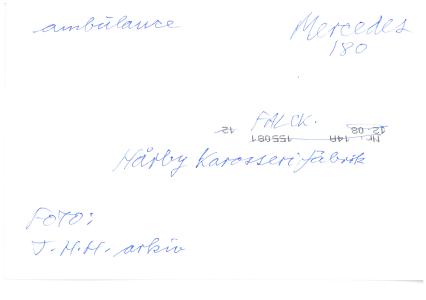 ambulance
Mercedes
180
FALCK.
12
Nr. 14A 155081
12.08
Hårby Karosserifabrik
FOTO:
J.H.H. arkiv